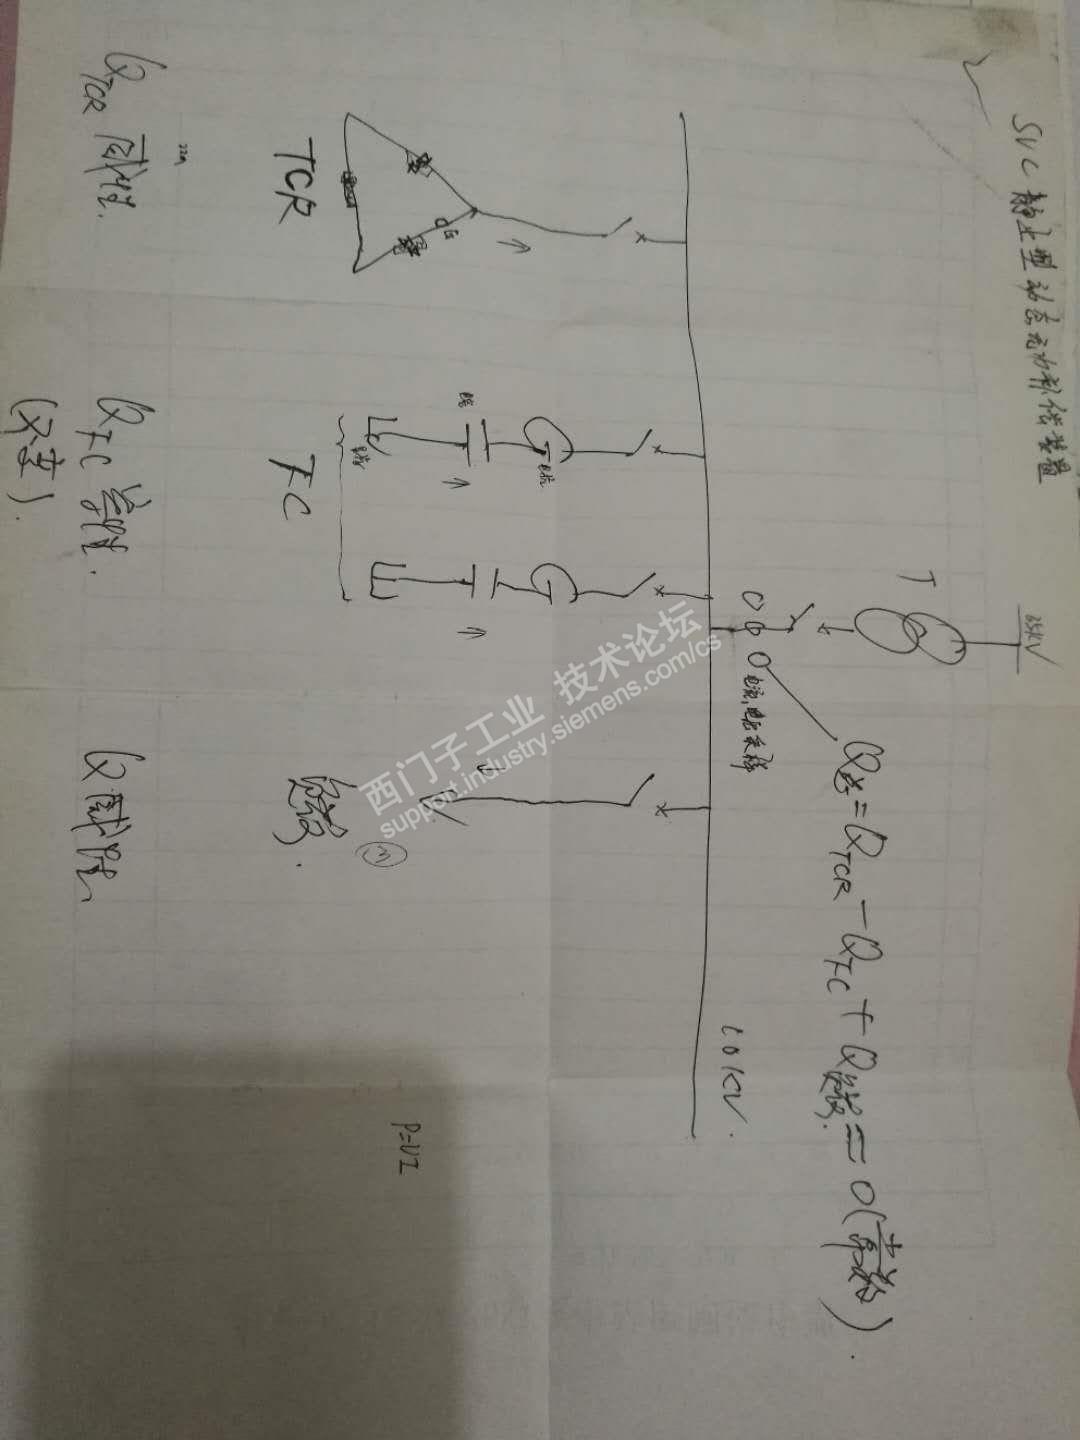 SVC 静止型动态无功补偿装置
35KV
T
Q总=QTCR-QFC+Q负载=0(常数).
电流,电压采样
10KV.
电抗
电容
TCR
FC
负载.
P=UI
QTCR 感性.
QFC 容性.
(不变).
Q感性
西门子工业 技术论坛
support.industry.siemens.com/cs